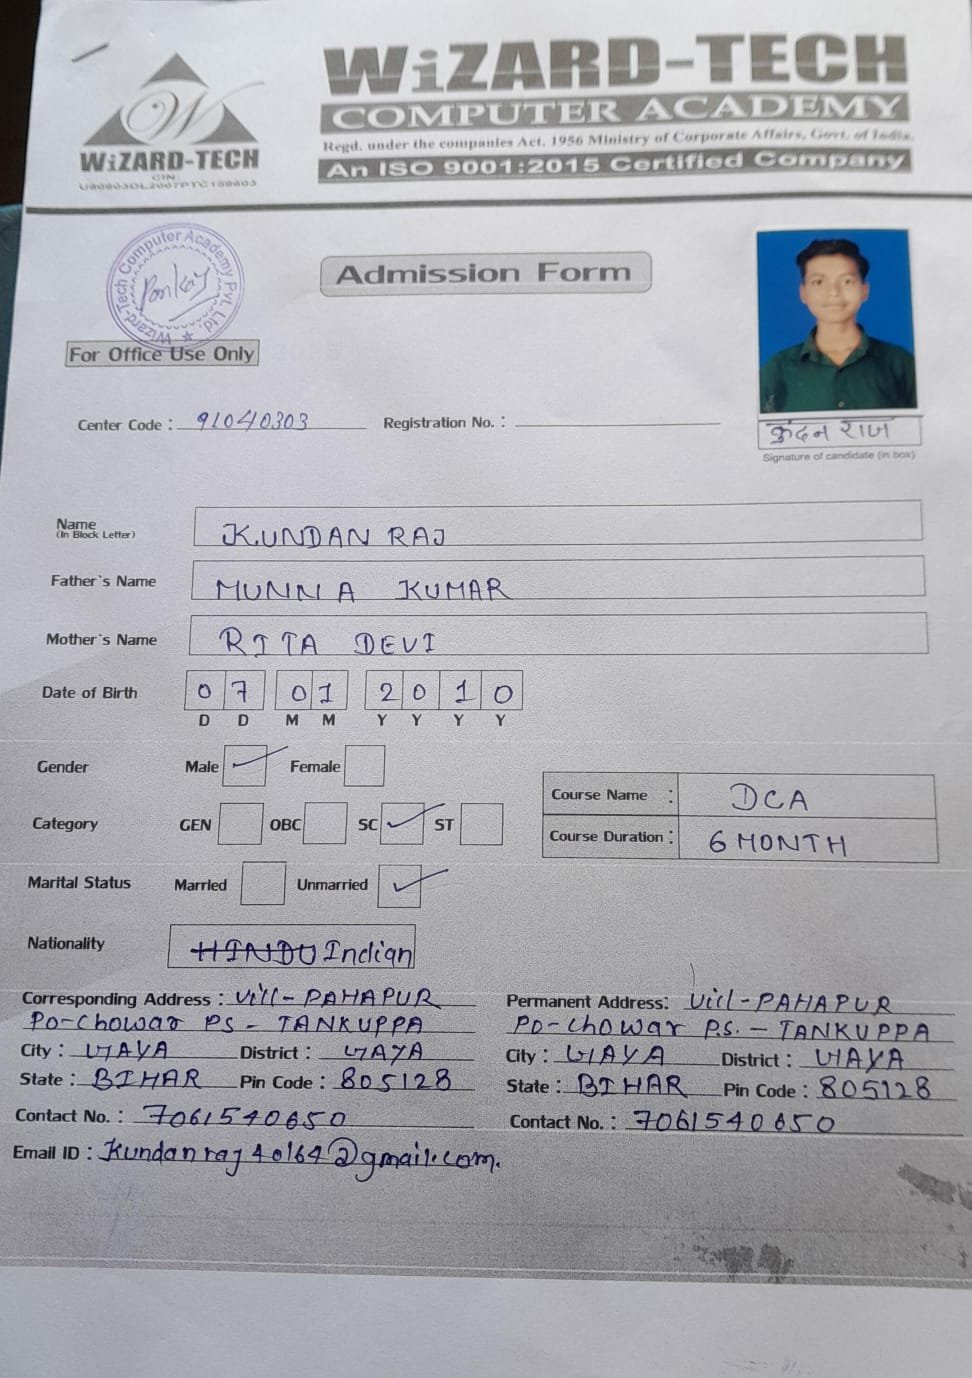 WiZARD-TECH
COMPUTER ACADEMY
Regd. under the companies Act. 1956 Ministry of Corporate Affairs, Govt. of India.
An ISO 9001:2015 Certified Company
W
WiZARD-TECH
CIN:
Wizard-Tech Computer Academy Pvt. Ltd.
Pankaj
Admission Form
For Office Use Only
Center Code : 91040303 Registration No. :
कुंदन राज
Signature of candidate (in box)
Name KUNDAN RAJ
(In Block Letter)
Father`s Name MUNNA KUMAR
Mother`s Name RITA DEVI
Date of Birth 07 01 2010
D D M M Y Y Y Y
Gender Male Female
Course Name : DCA
Category GEN OBC SC ST
Course Duration : 6 MONTH
Marital Status Married Unmarried
Nationality HINDU Indian
Corresponding Address : Vill- PAHAPUR
Po-Chowar PS - TANKUPPA
City : GAYA District : GAYA
State : BIHAR Pin Code : 805128
Contact No. : 7061540650
Email ID : Kundanraj40164@gmail.com.
Permanent Address: Vill-PAHAPUR
Po-Chowar P.S. - TANKUPPA
City : GAYA District : GAYA
State : BIHAR Pin Code : 805128
Contact No. : 7061540650